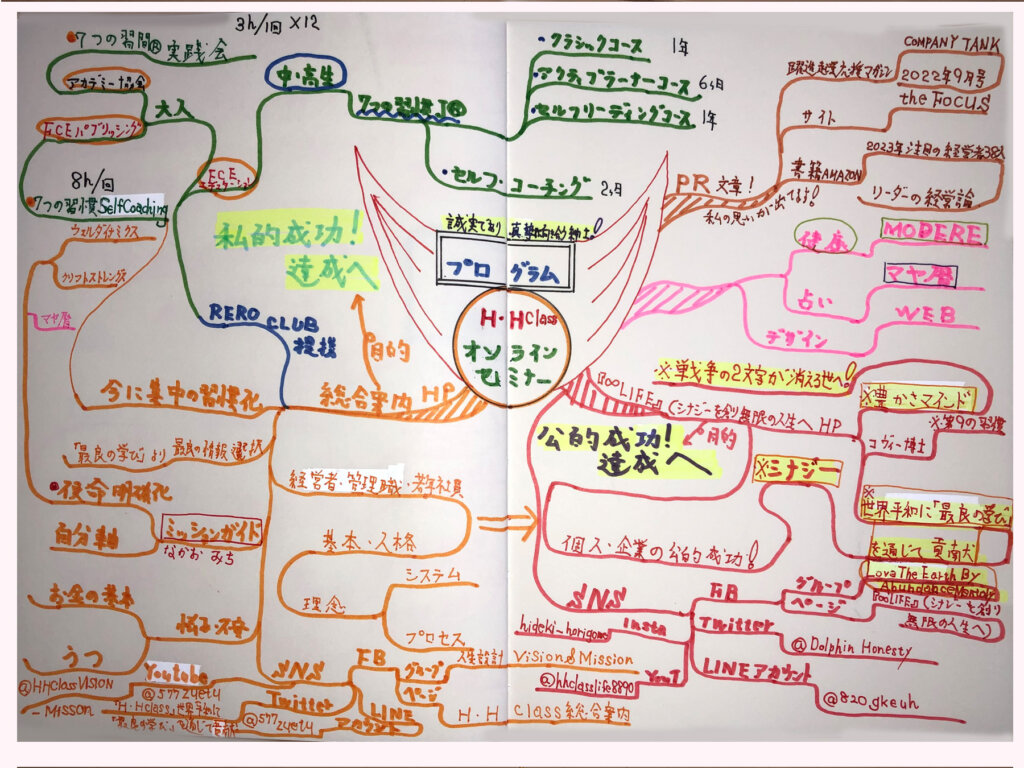 3h/1回 ×12
7つの習慣® 実践会
アカデミー協会
大人
FCEパブリッシング
8h/回
7つの習慣SelfCoaching
中・高生
FCE
エデュケーション
7つの習慣J®
・クラシックコース 1年
・アクティブラーナーコース 6ヶ月
・セルフリーディングコース 1年
・セルフ・コーチング 2ヶ月
COMPANY TANK
躍進企業応援マガジン
2022年9月号
the FOCUS
サイト
2023年注目の経営者38人
書籍AMAZON
リーダーの経営論
PR文章!
私の思いが出てる!
私的成功!
達成へ
目的
誠実であり 真摯的な紳士。!
プログラム
H・HClass
オンライン
セミナー
健康
MODERE
占い
マヤ暦
デザイン
WEB
ウェルスダイナミクス
クリフトストレングス
マヤ暦
RERO CLUB
提携
今に集中の習慣化
総合案内 HP
※戦争の2文字が消える世へ!
『ooLIFE』(シナジーを創り無限の人生へ HP
※豊かさマインド
※第9の習慣
コヴィー博士
公的成功!
達成へ
目的
「最良の学び」より 最良の情報選択
経営者・管理職・若年社員
※シナジー
※
世界平和に「最良の学び」
を通じて貢献だ
使命明確化
ミッションガイド
なかお みち
自分軸
基本・人格
個人・企業の公的成功!
Love The Earth By
Abundance Mentality
お金の基本
理念
システム
プロセス
SNS
FB
グループ
ページ
『ooLIFE』(シナジーを創り
無限の人生へ)
悩み・不安
うつ
hideki_horigome
Insta
Twitter
@Dolphin Honesty
Youtube
SNS
FB
グループ
人生設計 Vision&Mission
YouT
LINEアカウント
@HHclassVISION
_Misson
@577zyetu
ページ
@hhclasslife8890
@820gkeuh
"H・H Class"世界平和に
「最良の学び」を通じて貢献
Twitter
@577zyetu
LINE
アカウント
H・H Class総合案内